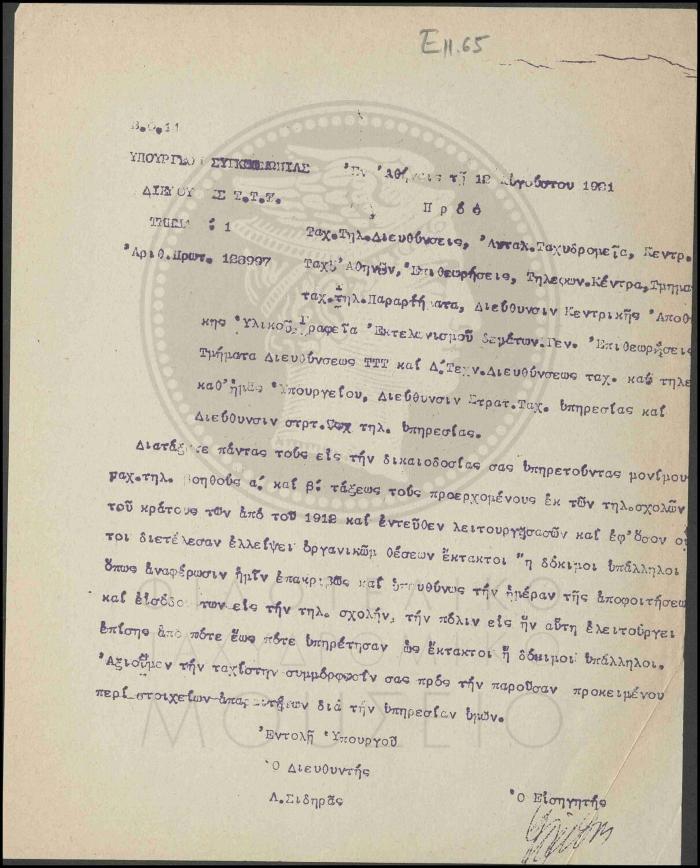 Ε ΙΙ.65
Β.Ο.11
ΥΠΟΥΡΓΕΙΟΝ ΣΥΓΚΟΙΝΩΝΙΑΣ Ἐν Ἀθήναις τῇ 12 Αὐγούστου 1921
ΔΙΕΥΘΥΝΣΙΣ Τ.Τ.Τ. Πρὸς
ΤΜΗΜΑ : 1 Ταχ.Τηλ.Διευθύνσεις, Ἀνταλ.Ταχυδρομεῖα, Κεντρ.
Ἀριθ.Πρωτ. 128997 Ταχ. Ἀθηνῶν, Ἐπιθεωρήσεις, Τηλεφων.Κέντρα, Τμηματ
ταχ.τηλ.Παραρτήματα, Διεύθυνσιν Κεντρικῆς Ἀποθ
κης Ὑλικοῦ, Γραφεῖα Ἐκτελωνισμοῦ δεμάτων. Γεν. Ἐπιθεωρήσεις
Τμήματα Διευθύνσεως ΤΤΤ καὶ Δ.Τεχν.Διευθύνσεως ταχ. καὶ τηλε
καθ'ἡμᾶς Ὑπουργείου, Διεύθυνσιν Στρατ.Ταχ. ὑπηρεσίας καὶ
Διεύθυνσιν στρτ. τηλ. ὑπηρεσίας.
Διατάξατε πάντας τοὺς εἰς τὴν δικαιοδοσίας σας ὑπηρετοῦντας μονίμου
ταχ.τηλ. βοηθοὺς α΄ καὶ β΄ τάξεως τοὺς προερχομένους ἐκ τῶν τηλ.σχολῶν
τοῦ κράτους τῶν ἀπὸ τοῦ 1912 καὶ ἐντεῦθεν λειτουργησασῶν καὶ ἐφ'ὅσον οὗ
τοι διετέλεσαν ἐλλείψει ὀργανικῶμ θέσεων ἔκτακτοι ἢ δόκιμοι ὑπάλληλοι
ὅπως ἀναφέρωσιν ἡμῖν ἐπακριβῶς καὶ ὑπευθύνως τὴν ἡμέραν τῆς ἀποφοιτήσεω
καὶ εἰσόδου των εἰς τὴν τηλ. σχολήν, τὴν πόλιν εἰς ἣν αὕτη ἐλειτούργει
ἐπίσης ἀπὸ πότε ἕως πότε ὑπηρέτησαν ὡς ἔκτακτοι ἢ δόκιμοι ὑπάλληλοι.
Ἀξιοῦμεν τὴν ταχίστην συμμόρφωσίν σας πρὸς τὴν παροῦσαν προκειμένου
περὶ στοιχείων ἀπαραιτήτων διὰ τὴν ὑπηρεσίαν ὑμῶν.
Ἐντολῇ Ὑπουργοῦ
Ὁ Διευθυντὴς
Λ.Σιδηρᾶς Ὁ Εἰσηγητὴς
ΜΟΥΣΕΙΟ